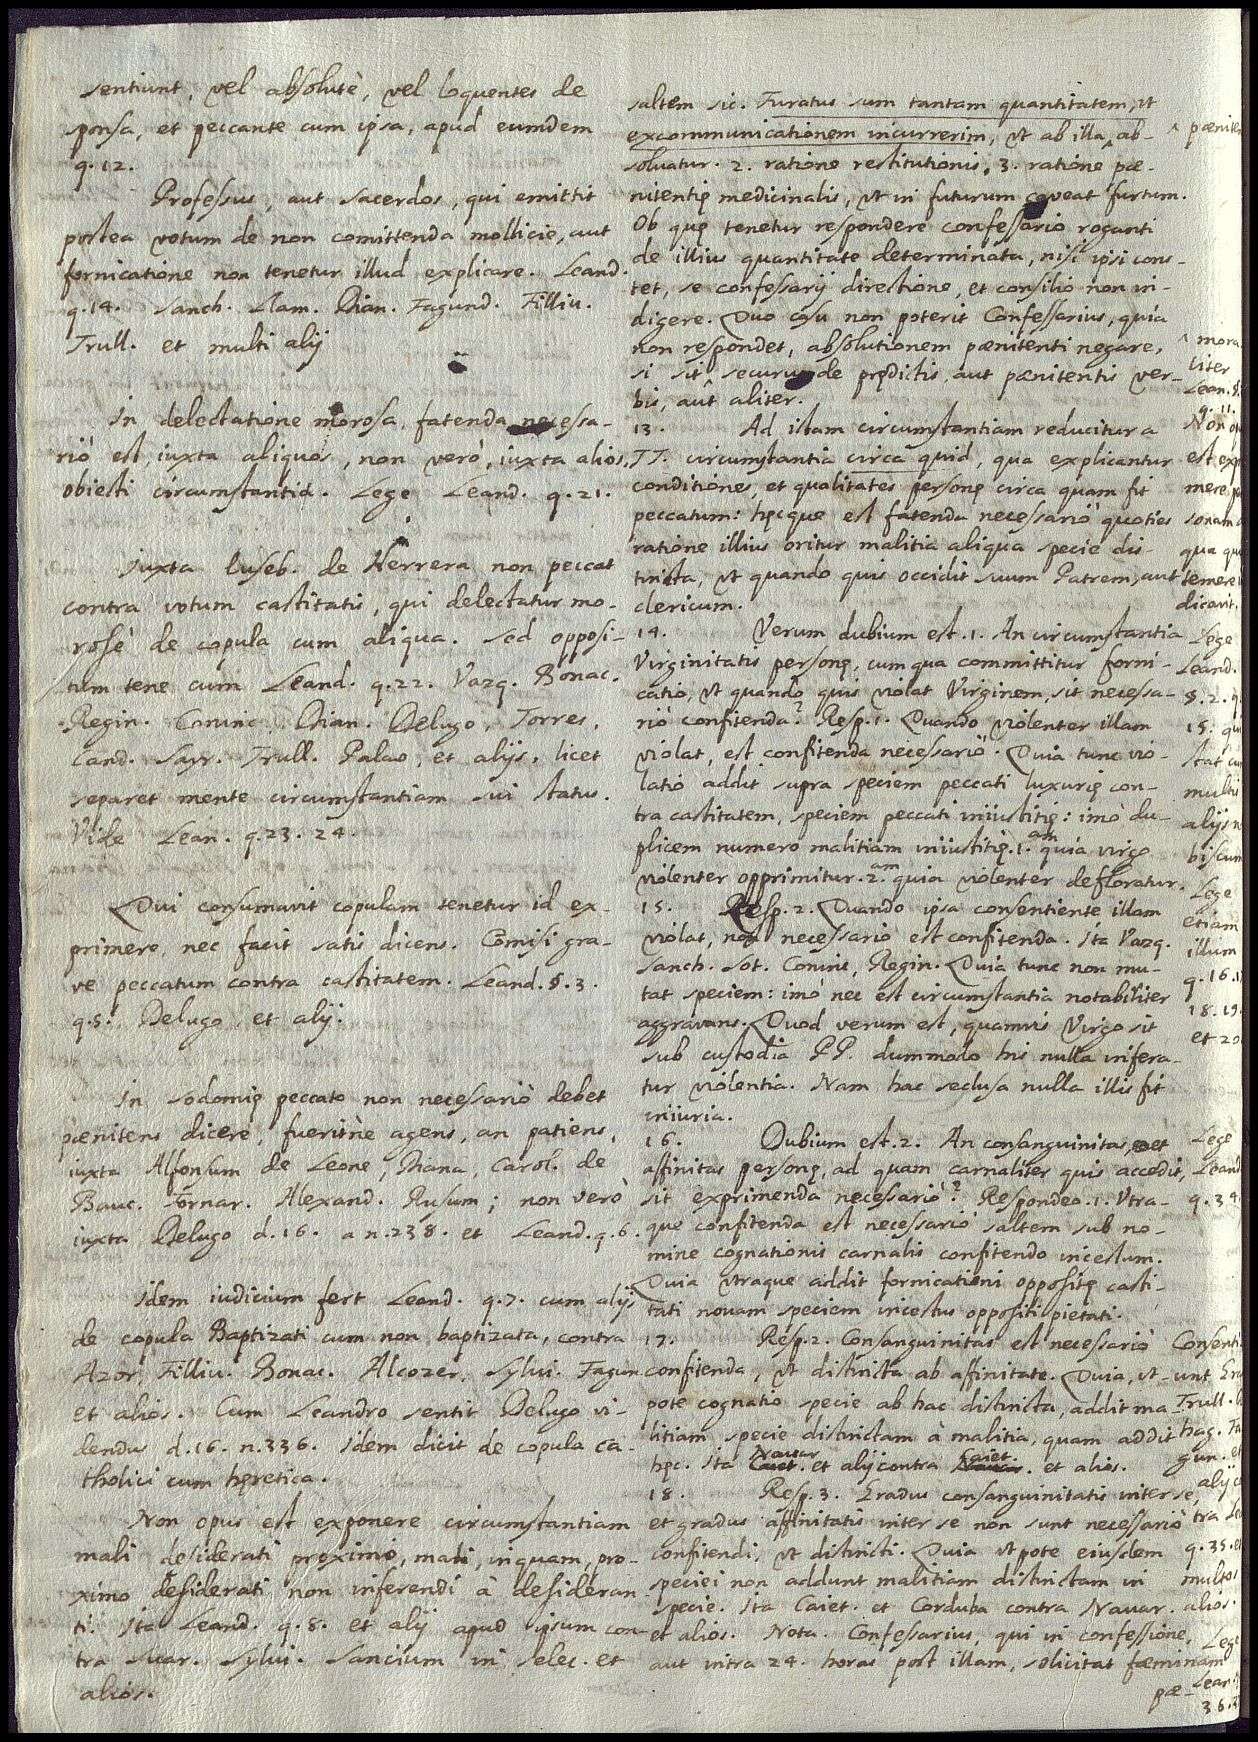 sentiunt, vel absolutè, vel loquentes de
sponsa, et peccante cum ipsa, apud eumdem
q. 12.
Professus, aut sacerdos, qui emittit
postea votum de non comittenda mollicie, aut
fornicatione non tenetur illud explicare. Leand.
q. 14. Sanch. Llam. Dian. Fagund. Filliu.
Trull. et multi alij
In delectatione morosa, fatenda necessa-
riò est, iuxta aliquos, non verò, iuxta alios,
obiecti circumstantia. Lege Leand. q. 21.
Iuxta Euseb. de Herrera non peccat
contra votum castitatis, qui delectatur mo-
rosè de copula cum aliqua. Sed opposi-
tum tene cum Leand. q. 22. Vazq. Bonac.
Regin. Coninc. Dian. Delugo, Torres,
Cand. Sayr. Trull. Palao, et alijs, licet
separet mente circumstantiam sui status.
Vide Lean. q. 23. 24.
Qui consumavit copulam tenetur id ex-
primere, nec facit satis dicens. Comisi gra-
ve peccatum contra castitatem. Leand. §. 3.
q. 5. Delugo, et alij.
In sodomię peccato non necessariò debet
pænitens dicere, fueritnè agens, an patiens,
iuxta Alfonsum de Leone, Diana, Carol. de
Bauc. Fornar. Alexand. Rusum; non verò
iuxta Delugo d. 16. a n. 238. et Leand. q. 6.
Idem iudicium fert Leand. q. 7. cum alijs
de copula Baptizati cum non baptizata, contra
Azor, Filliu. Bonac. Alcozer, Sylvi. Fagun
et alios. Cum Leandro sentit Delugo vi-
dendus d. 16. n. 336. Idem dicit de copula ca-
tholici cum hęretica.
Non opus est exponere circumstantiam
mali desiderati proximo, mali, inquam, pro-
ximo desiderati non inferendi à desideran
ti. Ita Leand. q. 8. et alij apud ipsum con-
tra Suar. Sylvi. Sancium in selec. et
alios.
saltem sic. Furatus sum tantam quantitatem, ut
excommunicationem incurrerim, ut ab illa, ab-
soluatur. 2. ratione restitutionis. 3. ratione ^ pæ-
nitentię medicinalis, ut in futurum caveat furtum.
Ob quę tenetur respondere confessario roganti
de illius quantitate determinata, nisi ipsi cons-
tet, se confessarij directione, et consilio non in-
digere. Quo casu non poterit Confessarius, quia
non respondet, absolutionem pænitenti negare,
si sit securus de prędictis, aut pænitentis ver-
bis, aut aliter.
13. Ad istam circumstantiam reducitur a
TT. circumstantia circa quid, qua explicantur
conditiones, et qualitates personę circa quam fit
peccatum: hęcque est fatenda necessariò quoties
ratione illius oritur malitia aliqua specie dis-
tincta, ut quando quis occidit suum Patrem, aut
clericum.
14. Verum dubium est. 1. An circumstantia
Virginitatis personę, cum qua committitur forni-
catio, ut quando quis violat Virginem, sit necessa-
riò confitenda? Resp. 1. Quando violenter illam
violat, est confitenda necessariò. Quia tunc vio-
latio addit supra speciem peccati luxurię con-
tra castitatem, speciem peccati iniustitię: imò du-
plicem numero malitiam iniustitię. 1.am quia virgo
violenter opprimitur. 2.am quia violenter defloratur.
15. Resp. 2. Quando ipsa consentiente illam
violat, non necessariò est confitenda. Ita Vazq.
Sanch. Sot. Coninc, Regin. Quia tunc non mu-
tat speciem: imò nec est circumstantia notabiliter
aggravans. Quod verum est, quamvis Virgo sit
sub custodia PP. dummodo his nulla infera-
tur violentia. Nam hac seclusa nulla illis fit
iniuria.
16. Dubium est. 2. An consanguinitas, et
affinitas personę, ad quam carnaliter quis accedit,
sit exprimenda necessariò? Respondeo. 1. Utra-
que confitenda est necessariò saltem sub no-
mine cognationis carnalis confitendo incestum.
Quia utraque addit fornicationi oppositę casti-
tati novam speciem incestus oppositi pietati.
17. Resp. 2. Consanguinitas est necessariò
confitenda, ut distincta ab affinitate. Quia, ut-
pote cognatio specie ab hac distincta, addit ma-
litiam specie distinctam à malitia, quam addit
hęc. Ita Navar. et alij contra Caiet. et alios.
18. Resp. 3. Gradus consanguinitatis inter se,
et gradus affinitatis inter se non sunt necessariò
confitendi, ut distincti. Quia utpote eiusdem
speciei non addunt malitiam distinctam in
specie. Ita Caiet. et Corduba contra Navar.
et alios. Nota. Confessarius, qui in confessione,
aut intra 24. horas post illam, solicitat fæminam
pæ-
^ pæniten
^ mora
liter
Lean. §.
q. 11.
Non
est exp
mere
sonam
qua
temere
dicavit,
Lege
Leand.
§. 2.
15.
multi
alijs
Lege
etiam
illum
q. 16.
18. 19.
et 20
Lege
Leand
q. 34.
Consenti
unt,
Trull.
hag.
gun. et
alij
tra
q. 35. et
multos
alios.
Lege
Lean
36.